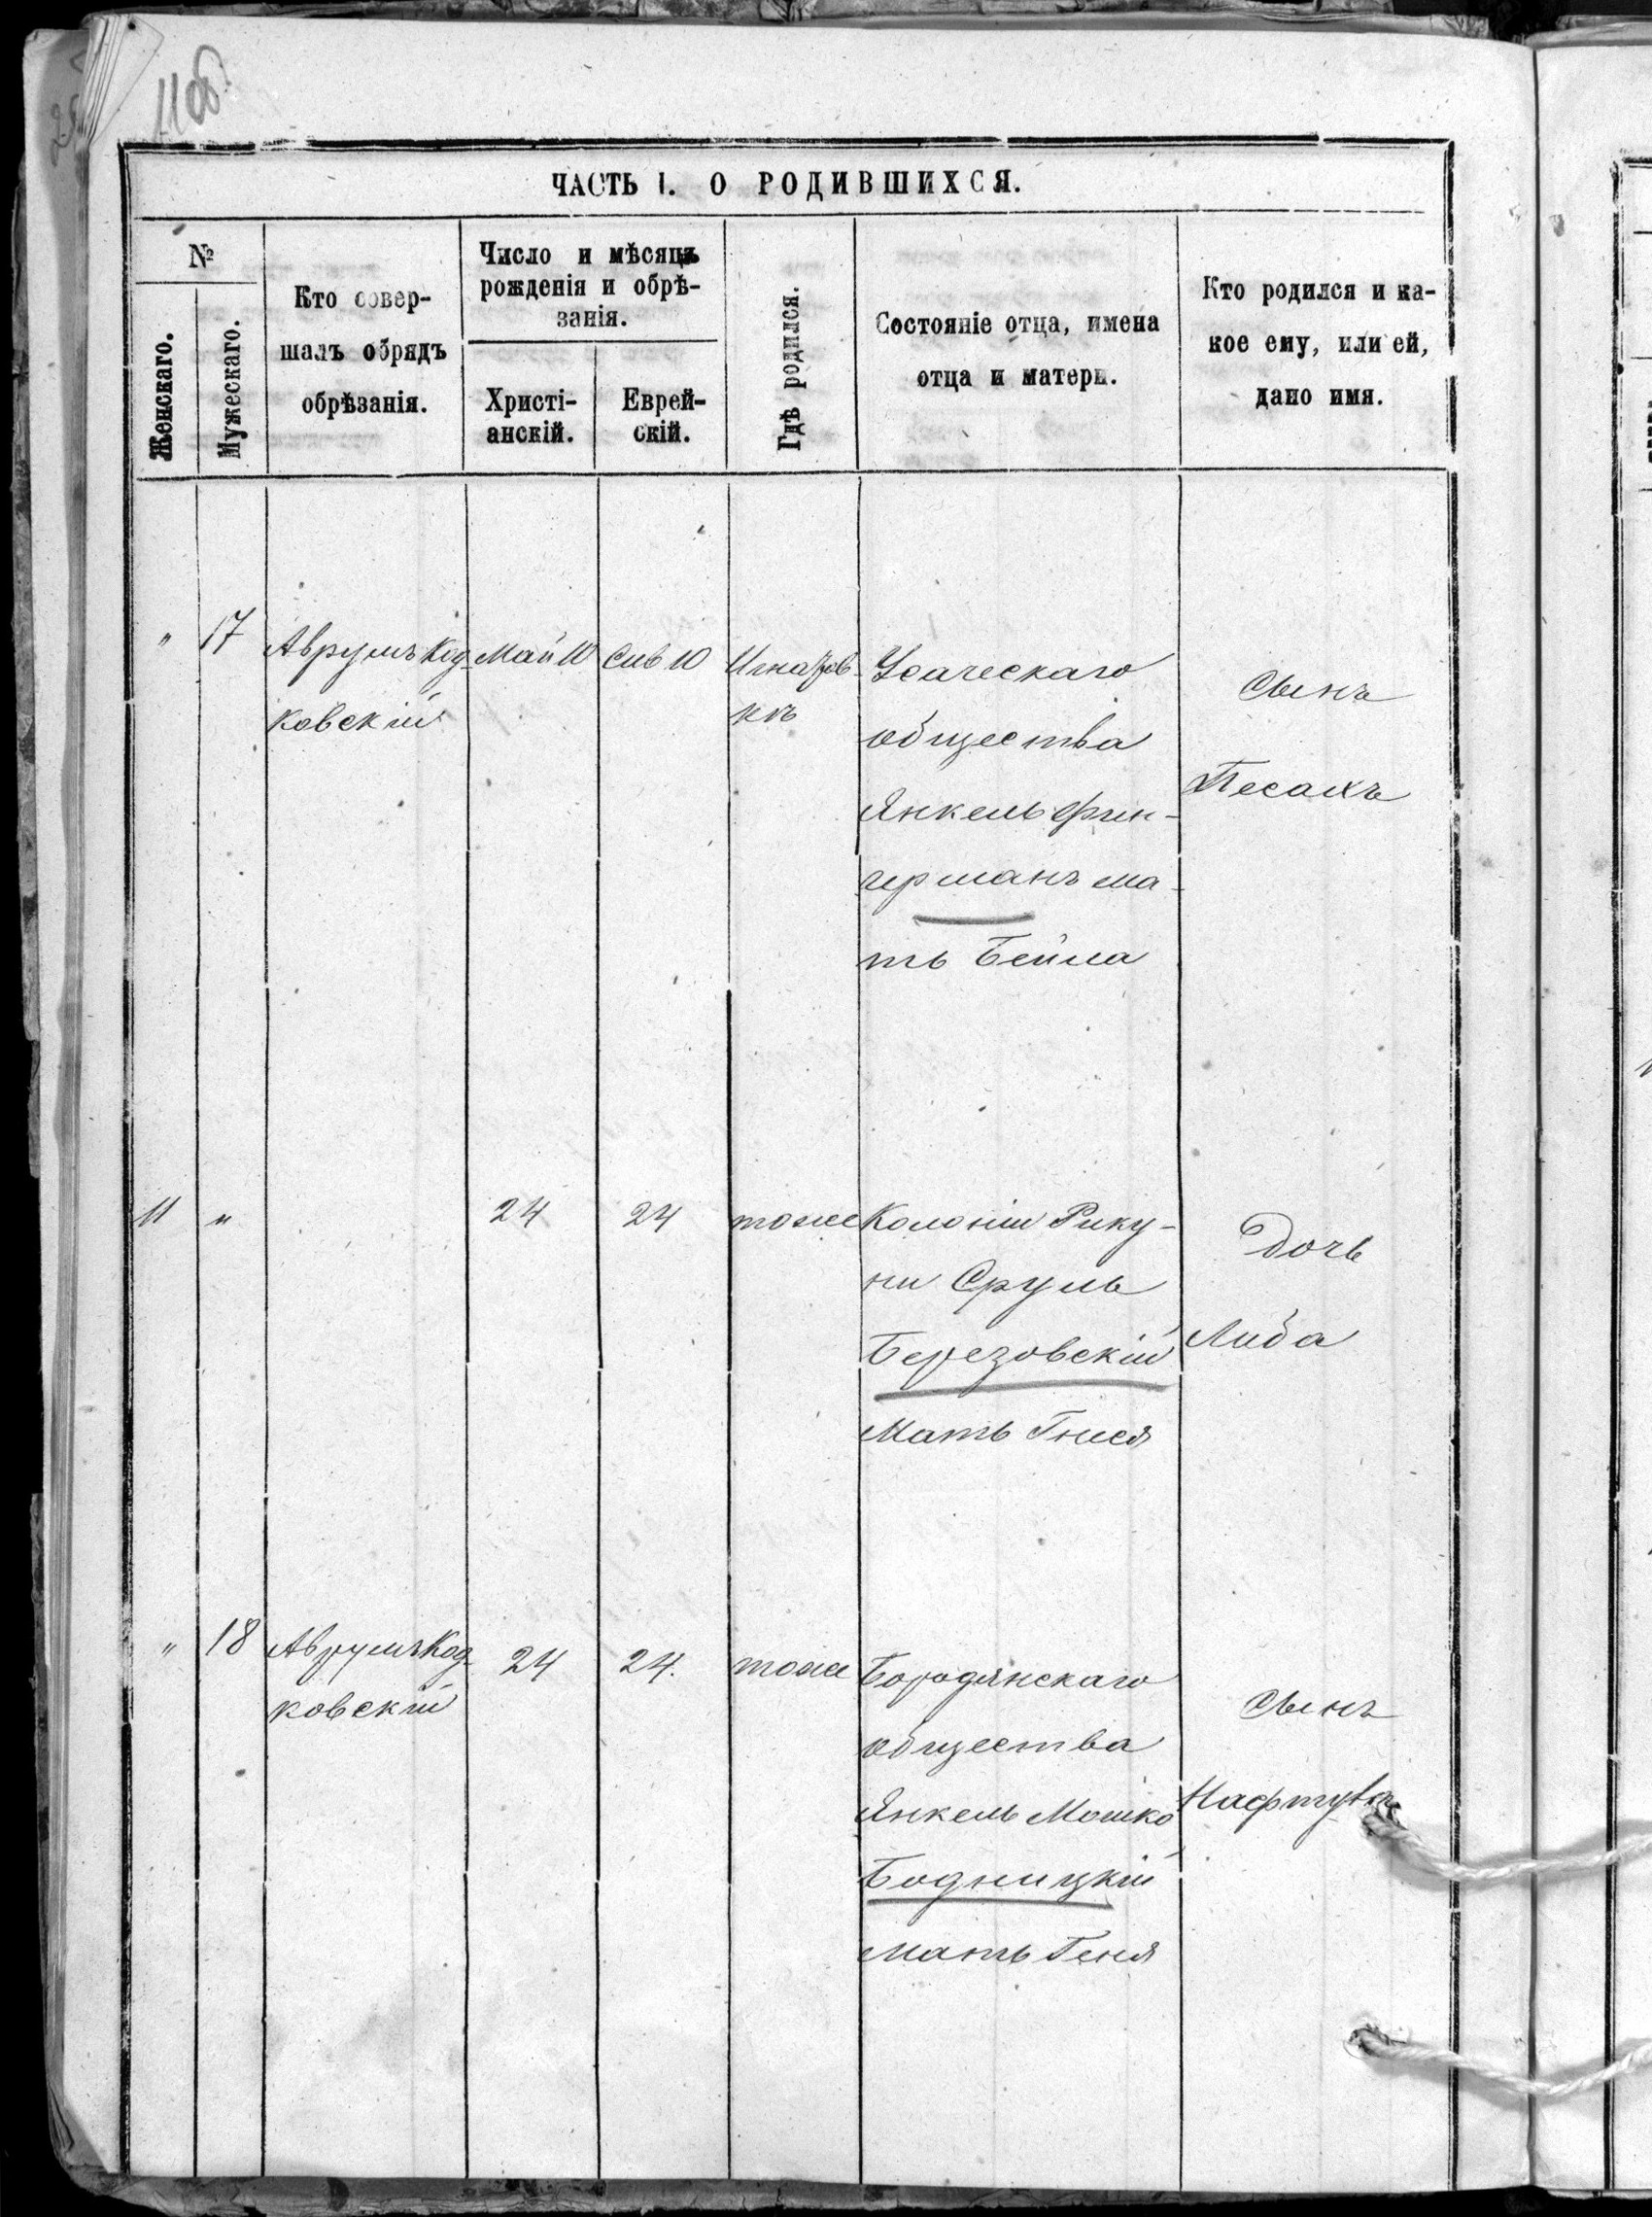 11об.
ЧАСТЬ I. О РОДИВШИХСЯ.
№
Женскаго.
Мужескаго.
Кто совер-
шалъ обрядъ
обрѣзанія.
Число и мѣсяцъ
рожденія и обрѣ-
занія.
Христі-
анскій.
Еврей-
скій.
Гдѣ родился.
Состояніе отца, имена
отца и матери.
Кто родился и ка-
кое ему, или ей,
дано имя.
" 17 Аврумъ Код-
ковскій
Май 10
Сив 10
Игнатов-
кѣ
общества
Янкель Фин-
германъ ма-
ть Бейла
Сынъ
Песахъ
11 "
24
24
тоже
Колоніи Рику-
ни Сруль
Березовскій
Мать Гнеся
Дочь
Либа
" 18 Аврумъ Код-
ковскій
24
24.
тоже
Бородянскаго
общества
Янкель Мошко
Бодницкій
мать Геня
Сынъ
Нафтула